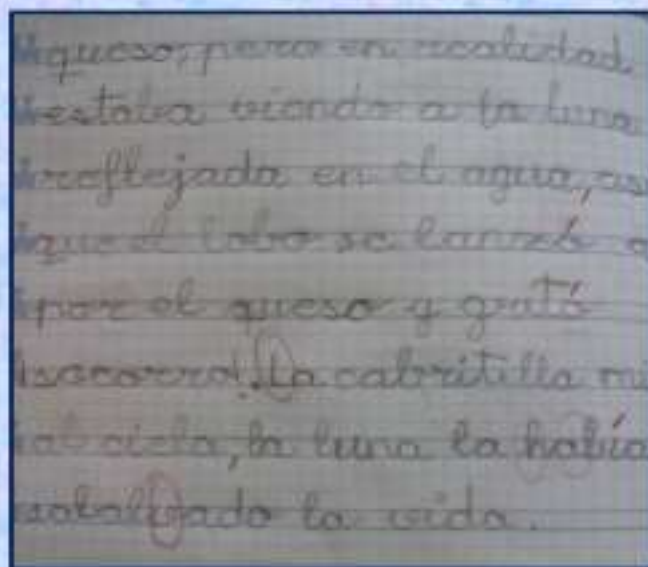 queso, pero en realidad
estaba viendo a la luna
reflejada en el agua, as
que el lobo se lanzó a
por el queso y gritó
¡socorro!. La cabritilla mi
al cielo, la luna la había
do la vida.